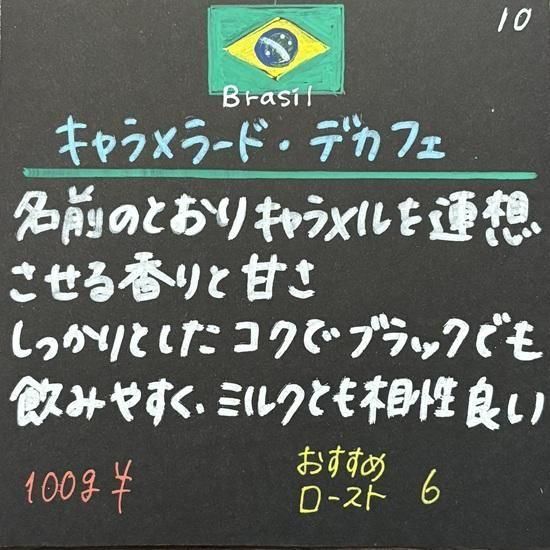 10
Brasil
キャラメラード・デカフェ
名前のとおりキャラメルを連想
させる香りと甘さ
しっかりとしたコクでブラックでも
飲みやすく、ミルクとも相性良い
100g ¥
おすすめ
ロースト 6